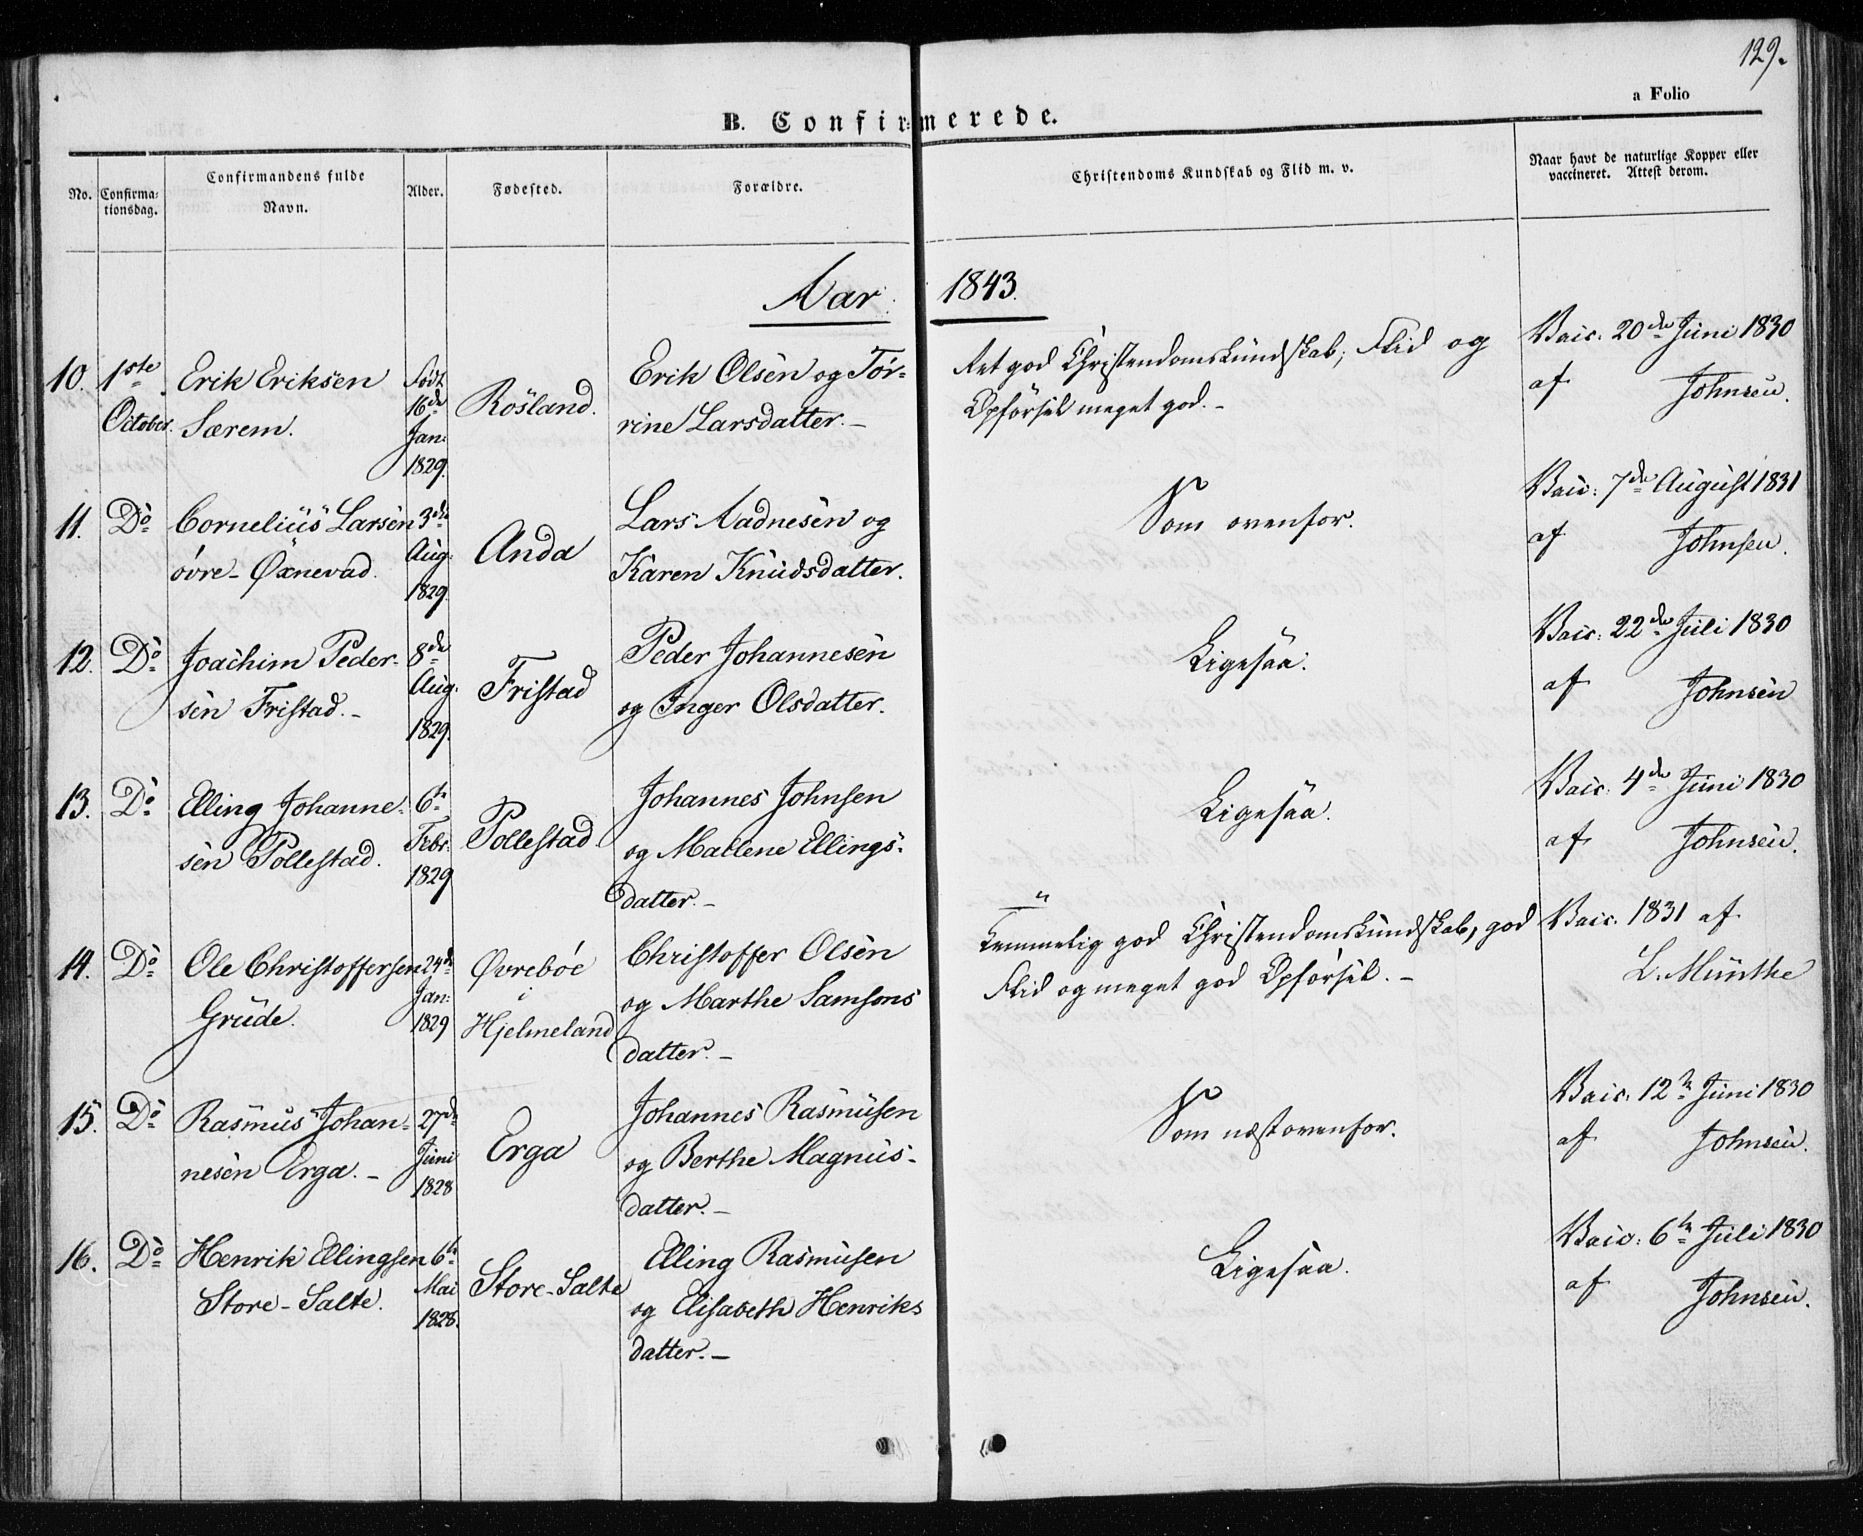 129.
a Folio
B. Confirmerede.
No.
Confirma-
tionsdag.
Confirmandens fulde
Navn.
Alder.
Fødested.
Forældre.
Christendoms Kundskab og Flid m. v.
Naar havt de naturlige Kopper eller
vaccineret. Attest derom.
Aar 1843.
10. 1ste October. Erik Eriksen
Særem.
Født
16de
Jan:
1829.
Rosland.
Erik Olsen og Tor-
rine Larsdatter.-
Ret god Christendomskundskab, Flid og
Opførsel meget god.-
Vaic: 20de Juni 1830
af Johnsen.
11. Do Cornelius Larsen
övre-Øxnevad.
3die
Aug:
1829.
Anda
Lars Aadnesen og
Karen Knudsdatter.
Som ovenfor.
Vaic: 7de August 1831
af Johnsen.
12. Do Joachim Peder-
sen Fristad.-
8de
Aug:
1829.
Fristad
Peder Johannesen
og Inger Olsdatter.
Ligesaa.
Vaic: 22de Juli 1830
af Johnsen
13. Do Elling Johanne-
sen Pollestad.
6te
Febr:
1829
Pollestad
Johannes Johnsen
og Mallene Ellings-
datter.-
Ligesaa.
Vaic: 4de Juni 1830
af Johnsen.
14. Do Ole Christoffersen
Grude.
24de
Jan:
1829
Øvrebøe
i
Hjelmeland
Christoffer Olsen
og Marthe Samsons
datter.-
Temmelig god Christendomskundskab, god
Flid og meget god Opførsel.-
Vaic. 1831 af
L. Munthe
15. Do Rasmus Johan-
nesen Erga.-
27de
Juni
1828
Erga
Johannes Rasmusen
og Berthe Magnus-
datter.-
Som næstovenfor.
Vaic: 12te Juni 1830
af Johnsen.
16. Do Henrik Ellingsen
Store-Salte.
6te
Mai
1828.
Store-Salte
Elling Rasmusen
og Elisabeth Henriks
datter.-
Ligesaa.
Vaic: 6te Juli 1830
af Johnsen.